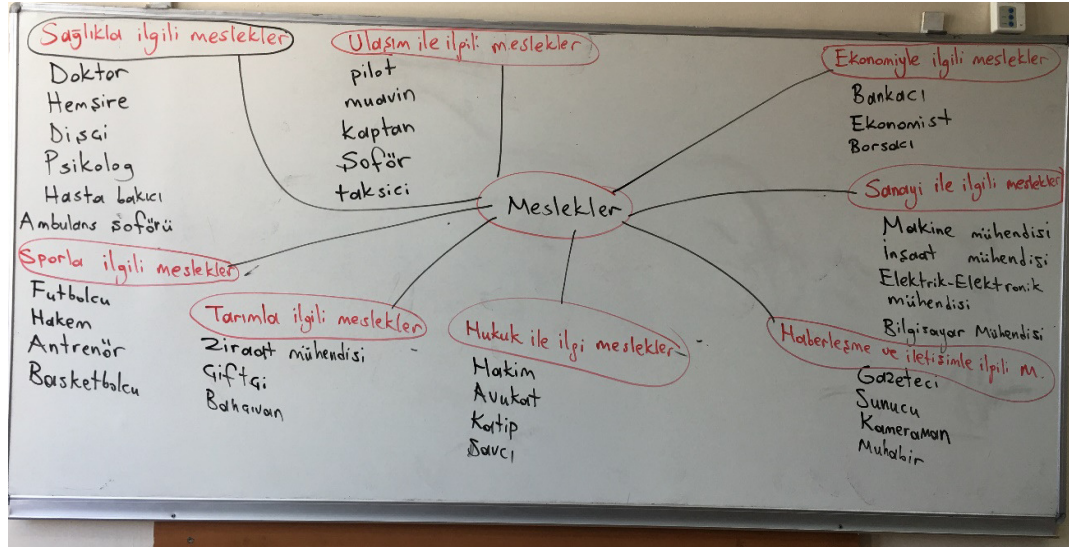 Sağlıkla ilgili meslekler
Doktor
Hemşire
Dişçi
Psikolog
Hasta bakıcı
Ambulans şoförü
Ulaşım ile ilgili meslekler
pilot
muavin
kaptan
Şoför
taksici
Ekonomiyle ilgili meslekler
Bankacı
Ekonomist
Borsacı
Meslekler
Sanayi ile ilgili meslekler
Makine mühendisi
İnşaat mühendisi
Elektrik-Elektronik
mühendisi
Bilgisayar Mühendisi
Sporla ilgili meslekler
Futbolcu
Hakem
Antrenör
Basketbolcu
Tarımla ilgili meslekler
Ziraat mühendisi
Çiftçi
Bahçıvan
Hukuk ile ilgi meslekler
Hakim
Avukat
Katip
Savcı
Haberleşme ve iletişimle ilgili M.
Gazeteci
Sunucu
Kameraman
Muhabir